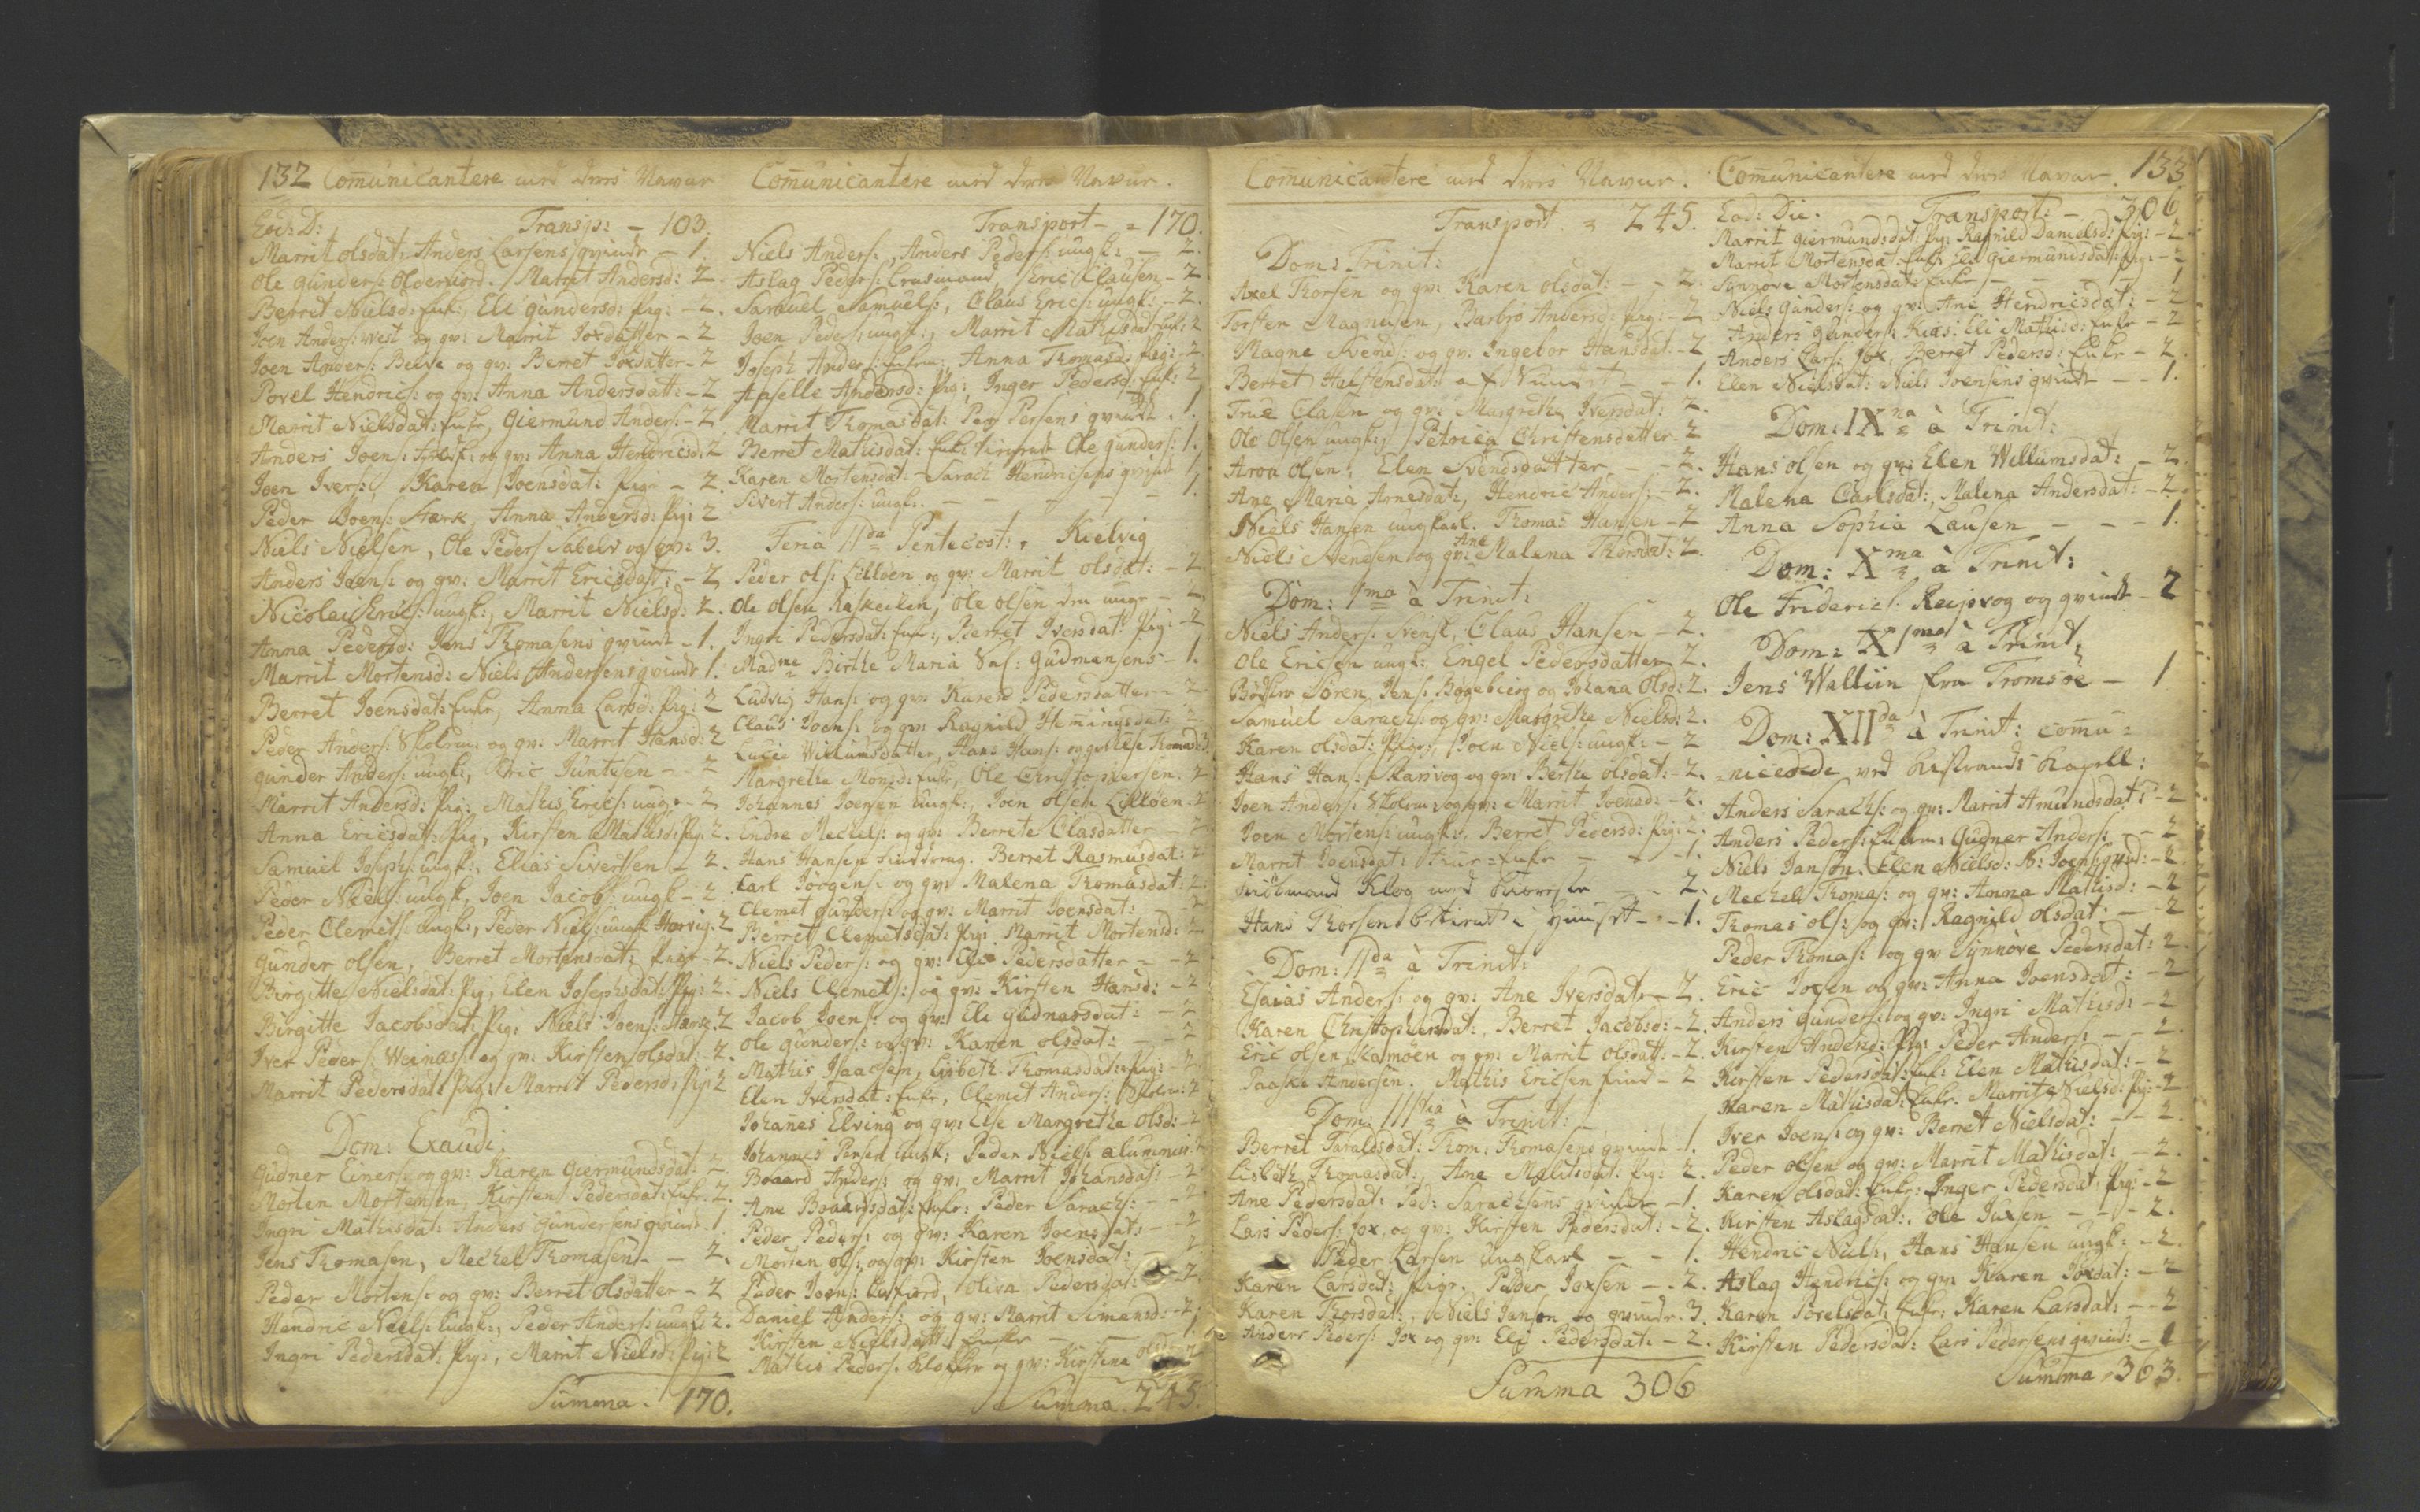 132 Comunicantere med deres Navne
Eod: D: Transp: - 103.
Marrit olsdat: Anders Larsens qvinde - 1.
Ole gunders: Olderfiord. Marrit Andersd: 2.
Berret Nielsd: Enke, Eli gundersd: Pig: - 2.
Joen Anders: West og qv: Marrit Joxdatter - 2
Joen Anders: og qv: Berret Joxdatter - 2
Povel Hendrics: og qv: Anna Andersdatt: - 2
Marrit Nielsdat: Enke, Giermund Anders: - 2
Anders Joens: og qv: Anna Hendricsd: 2
Joen Ivers: Karen Joensdat: Pige - 2.
Peder Joens: Stærk, Anna Andersd: Pig: 2
Niels Nielsen, Ole Peders: og qv: 3.
Anders Joens: og qv: Marrit Ericsdat: - 2
Nicolai Erics: ungk:, Marrit Nielsd: 2.
Anna Pedersd: Jens Thomasens qvinde - 1.
Marrit Mortensd: Niels Andersens qvinde 1.
Berret Joensdat: Enke, Anna Larsd: Pig: 2
Peder Anders: Skolem: og qv: Marrit Hansd: 2
gunder Anders: ungk:, Eric Juntesen - 2
Marrit Andersd: Pig: Mathis Erics: ungk - 2
Anna Ericsdat: Pig, Kirsten Mathisd: Pig: 2.
Samuel Josephs: ungk:, Elias Sivertsen - 2.
Peder Niels: ungk, Joen Jacobs: ungk - 2
Peder Clemets: ungk:, Peder Niels: ungk Horvig: 2
Gunder olsen, Berret Mortensdat: Pige - 2.
Birgitte Nielsdat: Pig, Elen Josephsdat: Pig: 2.
Birgitte Jacobsdat: Pig: Niels Joens: Stærk: 2
Iver Peders: Weinæs: og qv: Kirsten olsdat - 2.
Marrit Pedersdat: Pig: Marrit Pedersd: Pig: 2
Dom: Exaudi:
Gudner Einers: og qv: Karen Giermundsdat: 2
Morten Mortensen, Kirsten Pedersdat: Enke. 2.
Ingri Mathisdat: Anders Gundersens qvinde. 1
Jens Thomasen, Mechel Thomasen - - 2.
Peder Mortens: og qv: Berret olsdatter - 2
Hendric Niels: ungk:, Peder Anders: ungk: 2.
Ingri Pedersdat: Pig:, Marrit Nielsd: Pig: 2
Summa. 170.
Comunicantere med deres Navne.
Transport - = 170.
Niels Anders:, Anders Peders: ungk: - 2.
Aslag Peders: Eric Clausen - 2.
Samuel Samuels:, Claus Erics: ungk: - 2.
Joen Peders: ungk:, Marrit Mathisdat: Enk: 2
Joseph Anders: Anna Thomasd: Pig: 2.
Apselle Andersd: Pig:, Inger Pedersd: Enk: 2
Marrit Thomasdat: Peer Persens qvinde. 1.
Berret Mathisdat: Enke Ole gunders: 1.
Karen Mortensdat: Sarach Hendricsens qvinde 1.
Sivert Anders: ungk: - - - - 1.
Feria IIda Pentecost:, Kielvig
Peder ols: Lilløen og qv: Marrit olsdat: - 2
Ole Olsen Ole olsen den unge - 2
Ingri Pedersdat: Enke:, Berret Iversdat: Pig: - 2
Madme Birthe Maria Sal: Gudmansens - 1.
Ludvig Hans: og qv: Karen Pedersdatter - 2
Claus Joens: og qv: Ragnild Hemingsdat: 2
Lucie Willumsdatter, Hans Hans: Thomasd: 3
Margrethe Monsd: Enke, Ole Christophersen. 2
Johannes Joensen ungk:, Joen olsen Lilløen - 2
Endre Mechels: og qv: Berrete Clasdatter - 2
Hans Hansen Berret Rasmusdat: 2
Carl Jörgens: og qv: Malena Thomasdat: 2.
Clemet gunders: og qv: Marrit Joensdat: - 2
Berret Clemetsdat: Pig: Marrit Mortensd: 2
Niels Peders: og qv: Eli Pedersdatter - - 2
Niels Clemets: og qv: Kirsten Hansd: - 2
Jacob Joens: og qv: Eli gudnersdat: - 2
Ole gunders: og qv: Karen olsdat: - - 2
Mathis Isaacsen, Lisbeth Thomasdat: Pig: - 2.
Elen Iversdat: Enke, Clemet Anders: Skolem: 2
Johanes Elving og qv: Else Margrethe olsd: - 2
Johannes Persen ungk: Peder Niels: aluminist 2
Boaard Anders: og qv: Marrit Johansdat: - 2
Ane Boaardsdat: Enke: Peder Sarachs: - - 2
Peder Peders: og qv: Karen Joensdat: - - 2
Morten ols: og qv: Kirsten Joensdat: - 2
Peder Joens: Oliva Pedersdat: - 2
Daniel Anders: og qv: Marrit Simensd: - 2.
Kirsten Nielsdatter Enke - - 1.
Mathis Peders: Klokker og qv: Kirstena ols: 2
Summa. 245.
Comunicantere med deres Navne.
Transport = 245.
Dom: Trinit:
Axel Thorsen og qv: Karen olsdat: - - 2.
Torsten Magnusen, Barbro Andersd: Pig: - 2
Magne Svends: og qv: Ingebor Hansdat - 2
Berret Halstensdat: - - 1.
True Clasen og qv: Margrethe Iversdat: 2.
Ole Olsen ungk:, Petrica Christensdatter. 2
Aroa Olsen, Elen Svendsdatter - - 2.
Ane Maria Arnesdat:, Hendric Anders: - 2.
Niels Hansen ungkarl. Thomas Hansen - 2
Niels Svensen og qv: Ane Malena Thorsdat: 2.
Dom: Ima à Trinit:
Niels Anders: Svensk, Claus Hansen - 2.
Ole Ericsen ungk: Engel Pedersdatter 2.
Bødker Søren Jens: Bøgebierg og Johana Olsd: 2.
Samuel Sarachs: og qv: Margrethe Nielsd: 2.
Karen olsdat: Pige, Joen Niels: ungk: - 2
Hans Hans: Skarsvog og qv: Berthe olsdat: - 2.
Joen Anders: Skolem: og qv: Marrit Joensd: - 2.
Joen Mortens: ungk:, Berret Pedersd: Pig: 2.
Marret Joensdat: Enke - - - 1.
Kiøbmand Klog med - - 2.
Hans Thorsen - - 1.
Dom: IIda à Trinit:
Esaias Anders: og qv: Ane Iversdat - 2.
Karen Christophersdat:, Berret Jacobsd: - 2.
Eric olsen Kamøen og qv: Marrit olsdatt: - 2.
Paaske Andersen. Mathis Ericsen - 2
Dom: IIItia à Trinit:
Berret Taralsdat: Thom: Thomasens qvinde. 1.
Lisbeth Thomasdat:, Ane Mauritsdat: Pig: 2.
Ane Pedersdat: Ped: Sarachsens qvinde - 1.
Lars Peders: Jox, og qv: Kirsten Pedersdat: - 2.
Peder Larsen ungkarl - - 1.
Karen Larsdat: Pige. Peder Joxsen - - 2.
Karen Thorsdat:, Niels Janson og qvinde. 3.
Anders Peders: Jox og qv: Eli Pedersdat: - 2.
Summa 306
Comunicantere med deres Navne. 133
Eod: Die. Transport: - 306
Marrit giermundsdat: Pig: Ragnild Danielsd: Pig: - 2
Marrit Mortensdat: Enke: Eli Giermunsdat: Pig: - 2
Synnøve Mortensdat: Enke - - 1
Niels Gunders: og qv: Ane Hendricsdat: - 2
Anders Gunders: Eli Mathisd: Enke - 2
Anders Lars: Jox, Berret Pedersd: Enke - 2.
Elen Nielsdat: Niels Joensens qvinde - - 1.
Dom: IXna à Trinit:
Hans olsen og qv: Elen Willumsdat: - 2.
Malena Carlsdat:, Malena Andersdat: - 2.
Anna Sophia Lausen - - - 1.
Dom: Xma à Trinit:
Ole Friderics: Reipvog og qvinde - 2
Dom: XIma à Trinit:
Jens Walliin fra Tromsøe - 1
Dom: XIIda à Trinit: comu=
nicerede ved Kistrands Kapell:
Anders Sarachs: og qv: Marrit Amundsdat: - 2
Anders Peders: Gudner Anders: - 2
Niels Janson. Elen Nielsd: N: Joens: qvind: - 2
Mechel Thomas: og qv: Anna Mathisd: - 2
Thomas ols: og qv: Ragnild olsdat: - - 2
Peder Thomas: og qv Synnöve Pedersdat: 2.
Eric Joxsen og qv: Anna Joensdat: - 2
Anders gunders: og qv: Ingri Mathisd: - 2
Kirsten Andersd: Pig: Peder Anders: - - 2.
Kirsten Pedersdat: Enk: Elen Mathisdat: - 2
Karen Mathisdat: Enke. Marrit Nielsd: Pig: - 2
Iver Joens: og qv: Berret Nielsdat: - - 2.
Peder olsen og qv: Marrit Mathisdat: - 2.
Karen olsdat: Enke: Inger Pedersdat: Pig: - 2
Kirsten Aslagsdat:, Ole Juxsen - - - 2.
Hendric Niels:, Hans Hansen ungk: - 2.
Aslag Hendrics: og qv: Karen Joxdat: - 2
Karen Povelsdat: Enke: Karen Larsdat: - - 2
Kirsten Pedersdat: Lars Pedersens qvind: - 1
Summa, 363.